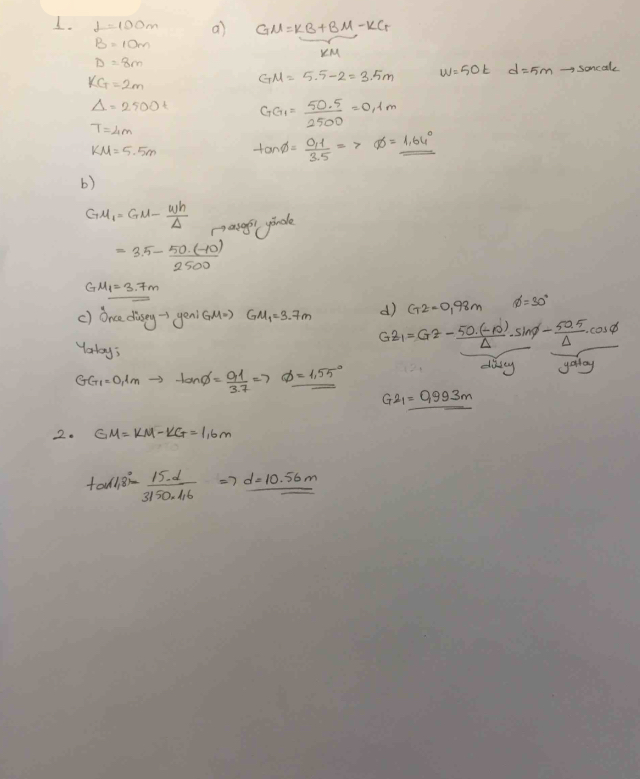 1. L=100m
B=10m
D=8m
KG=2m
Δ=2500t
T=4m
KM=5.5m
a) GM=KB+BM-KG
KM
GM=5.5-2=3.5m w=50t d=5m → sancak
GG₁=50.5/2500=0,1m
tanϕ=0,1/3.5 => ϕ=1,64°
b)
GM₁=GM-wh/Δ
→ aşağı yönde
=3.5-50.(-10)/2500
GM₁=3.7m
c) Önce düşey → yeni GM=> GM₁=3.7m
Yatay;
GG₁=0,1m → tanϕ=0,1/3.7 => ϕ=1,55°
d) GZ=0,98m ϕ=30°
GZ₁=GZ-50.(-10)/Δ.sinϕ-50.5/Δ.cosϕ
düşey yatay
GZ₁=0,993m
2. GM=KM-KG=1,6m
tan1,8°=15.d/3150.1,6 => d=10.56m